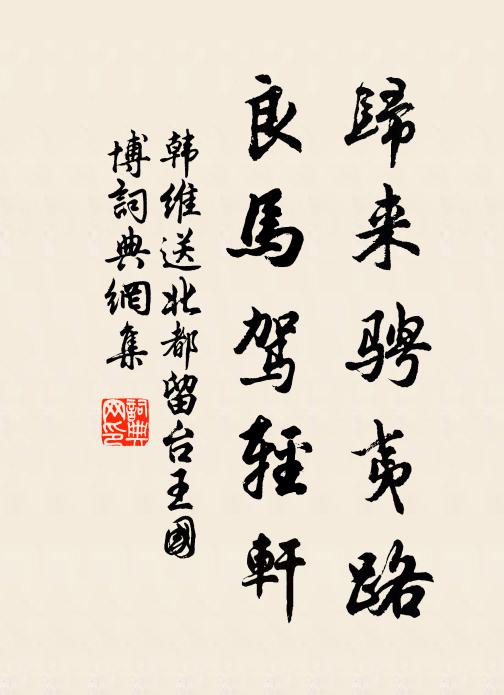 歸来骋夷路
良馬駕輕軒
韩維送北都留台王國
博詞典網集
詞典
网印